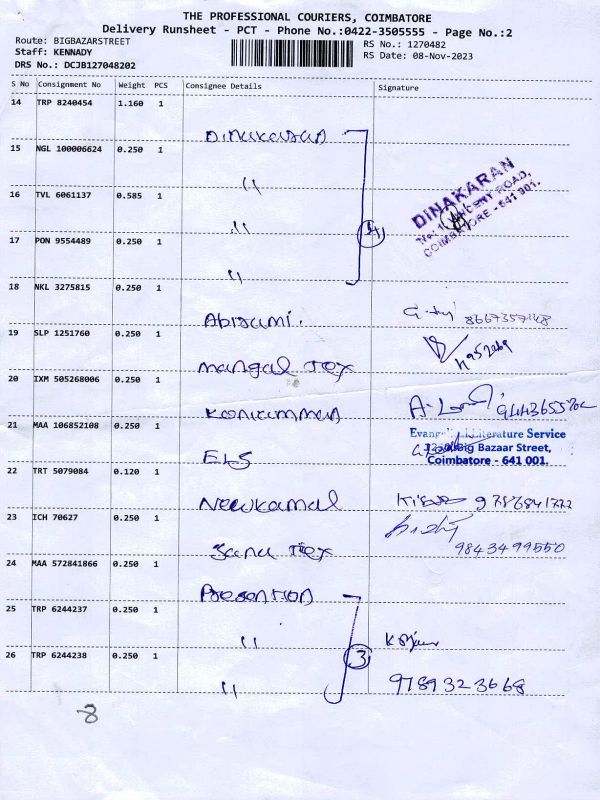 THE PROFESSIONAL COURIERS, COIMBATORE
Delivery Runsheet - PCT - Phone No.:0422-3505555 - Page No.:2
Route: BIGBAZARSTREET
Staff: KENNADY
DRS No.: DCJB127048202
RS No.: 1270482
RS Date: 08-Nov-2023
S No Consignment No Weight PCS Consignee Details Signature
14 TRP 8240454 1.160 1
Dinakaran
15 NGL 100006624 0.250 1
"
16 TVL 6061137 0.585 1
"
4
DINAKARAN
COIMBATORE - 641 001.
17 PON 9554489 0.250 1
"
18 NKL 3275815 0.250 1
Abirami.
19 SLP 1251760 0.250 1
Mangal Tex
20 IXM 505268006 0.250 1
Konkamman
21 MAA 106852108 0.250 1
Evangelical Literature Service
Big Bazaar Street,
Coimbatore - 641 001.
ELS
22 TRT 5079084 0.120 1
Newkamal
9786841772
23 ICH 70627 0.250 1
Janu Tex
9843499550
24 MAA 572841866 0.250 1
Presention
25 TRP 6244237 0.250 1
"
26 TRP 6244238 0.250 1
3
"
9789323668
8